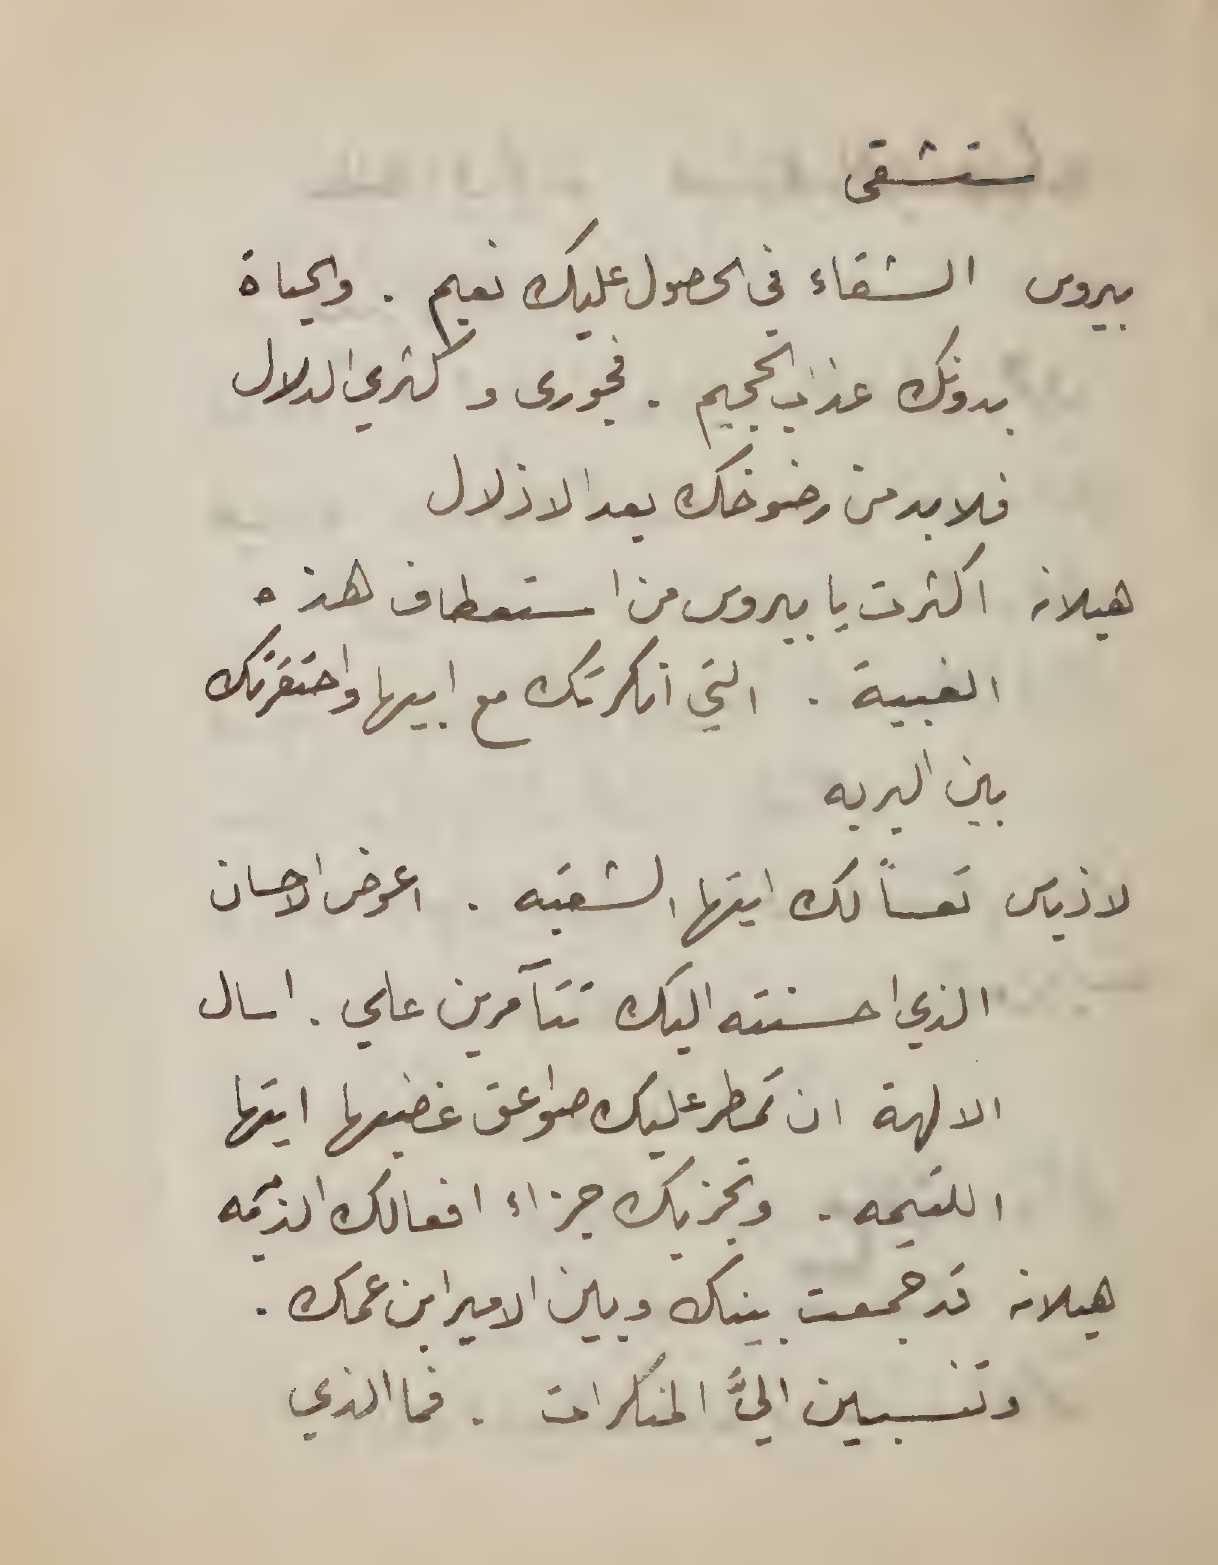 ستشقى
بيروس الشقاء في الحصول عليك نعيم . والحياة
بدونك عذاب الجحيم . فجورى و كثري الدلال
فلا بد من رضوخك بعد الاذلال
هيلانه اكثرت يا بيروس من استعطاف هذه
الغبية . التي انكرتك مع ابيها واحتقرتك
بين البريه
لاذياس تعساً لك ايتها الشقيه . اعوض الاحسان
الذي احسنته اليك تتآمرين علي . اسال
الالهة ان تمطر عليك صواعق غضبها ايتها
اللئيمه . وتجزيك جزاء افعالك الذميمه
هيلانه قد جمعت بينك وبين الامير ابن عمك .
وتنسبين اليَّ المنكرات . فما الذي